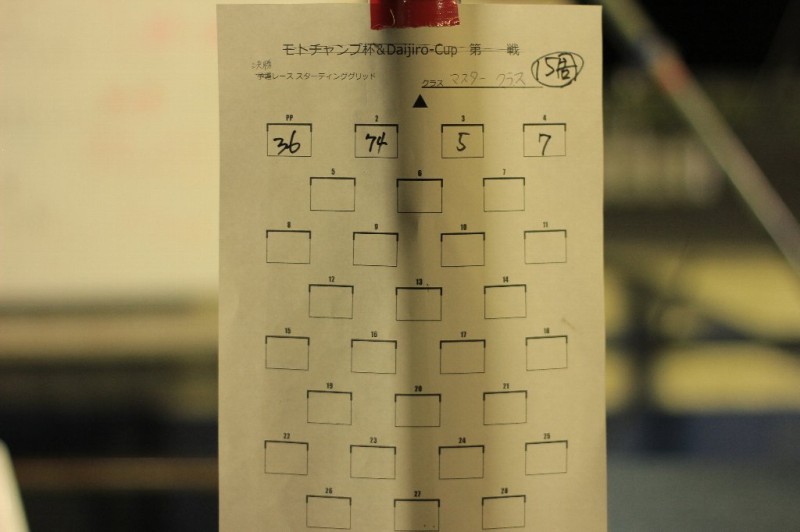 モトチャンプ杯&Daijiro-Cup 第一戦
決勝
予選レース スターティンググリッド
クラス マスタークラス
15周
PP 2 3 4
36 74 5 7
5 6 7
8 9 10 11
12 13 14
15 16 17 18
19 20 21
22 23 24 25
26 27 28